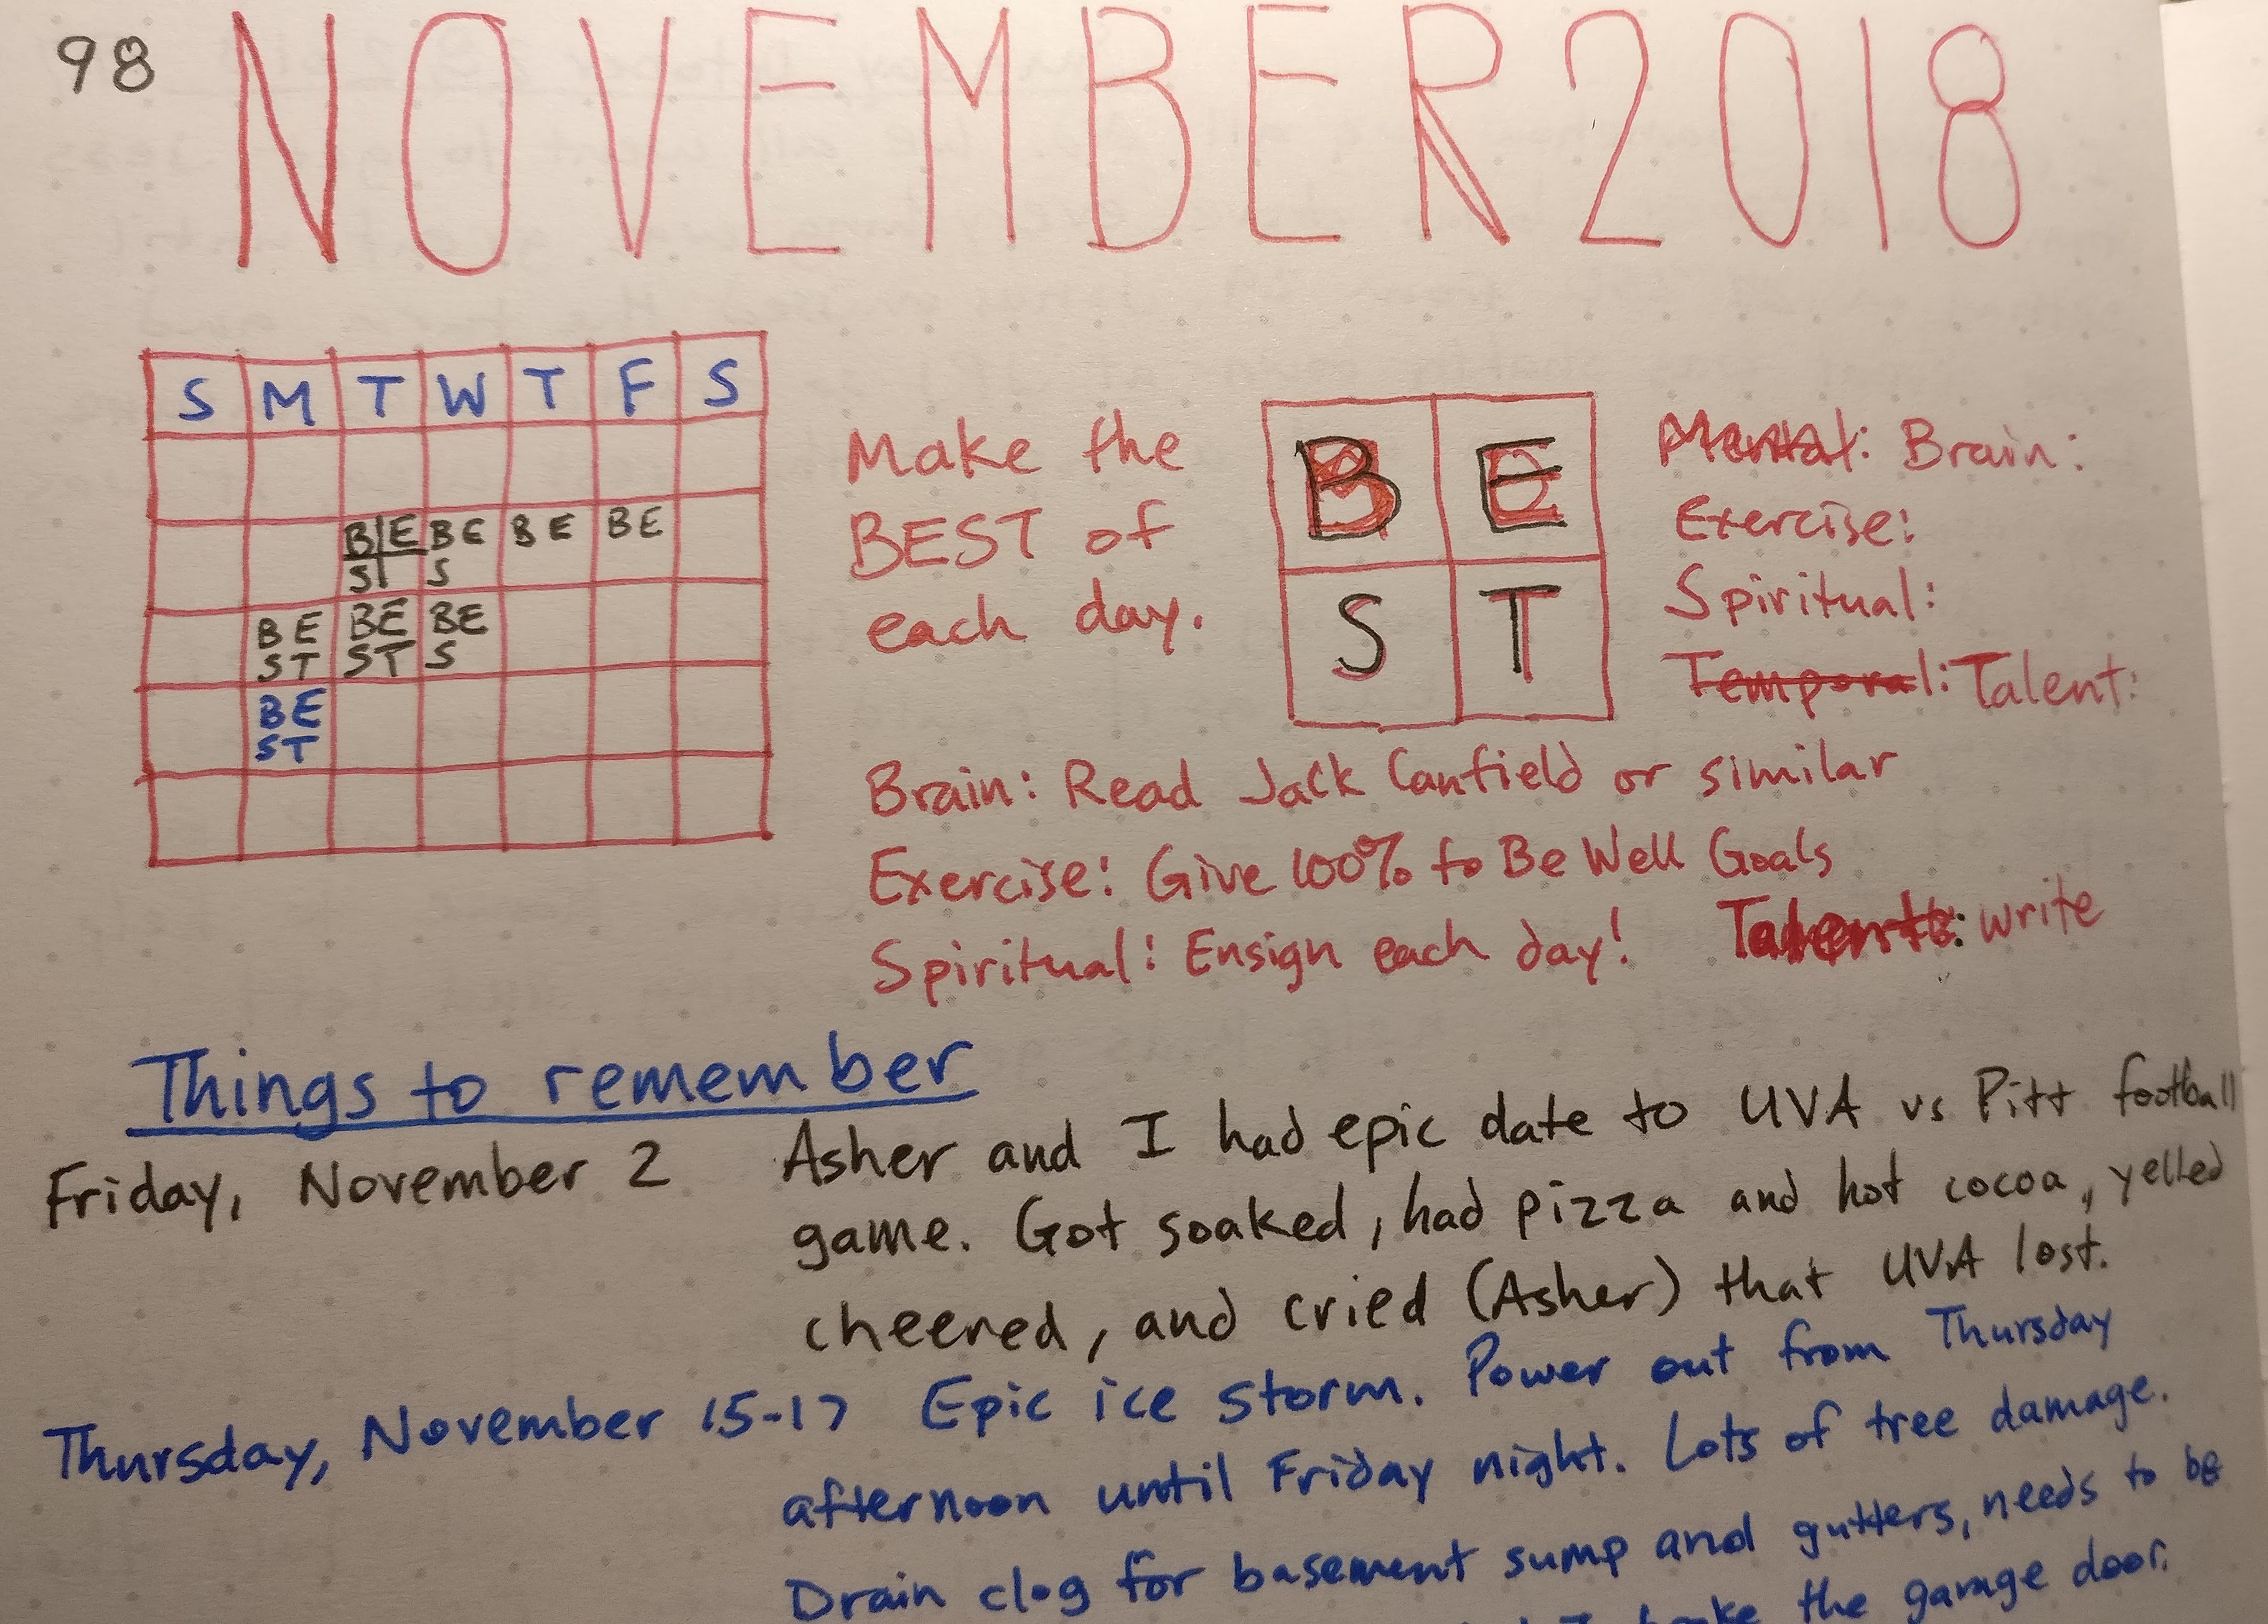 98 NOVEMBER 2018
S M T W T F S
B E BE B E BE
S S
B E BE BE
ST ST S
BE
ST
Make the
BEST of
each day.
B E
S T
Mental: Brain:
Exercise:
Spiritual:
Temporal: Talent:
Brain: Read Jack Canfield or similar
Exercise: Give 100% to Be Well Goals
Spiritual: Ensign each day! Talents: write
Things to remember
Friday, November 2 Asher and I had epic date to UVA vs Pitt football
game. Got soaked, had pizza and hot cocoa, yelled
cheered, and cried (Asher) that UVA lost.
Thursday, November 15-17 Epic ice storm. Power out from Thursday
afternoon until Friday night. Lots of tree damage.
Drain clog for basement sump and gutters, needs to be
I broke the garage door.